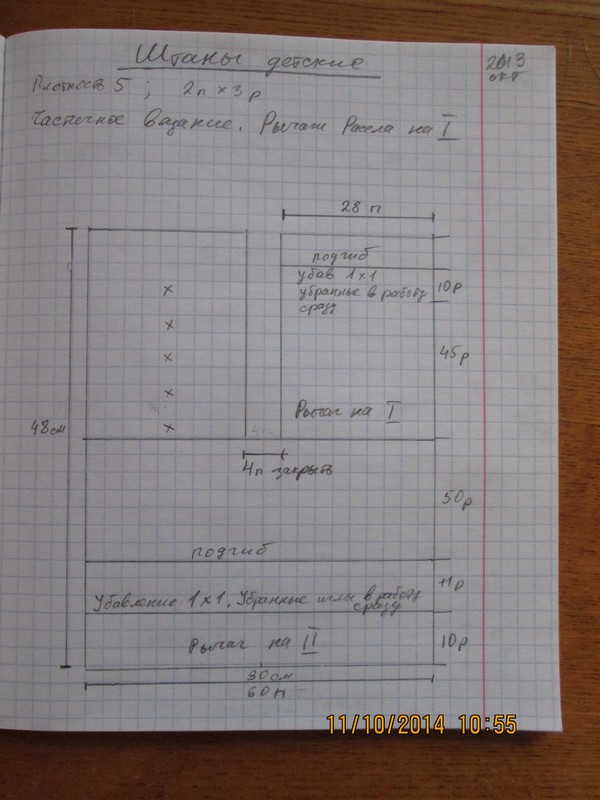 Штаны детские
2013
окт
Плотность 5 ; 2п × 3р
Частичное вязание. Рычаги Рассла на I
28 п
подгиб
убав 1×1
убранные в работу
сразу
10р
45р
Рычаг на I
48см
4п закрыть
50р
подгиб
11р
Убавление 1×1. Убранные иглы в работу
сразу
Рычаг на II
10р
30см
60п
11/10/2014 10:55